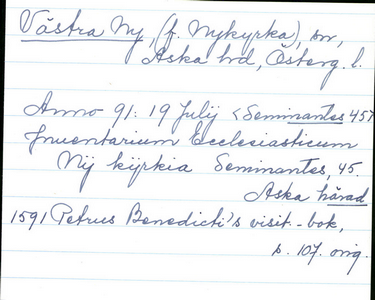 Västra Ny, (f. Nykyrka), sn,
Aska hd, Österg. l.
Anno 91: 19 Julij <Seminantes 457
Inventarium Ecclesiasticum
Nÿ kÿrkia Seminantes, 45.
Aska härad
1591 Petrus Benedicti's visit.-bok,
s. 107. orig.